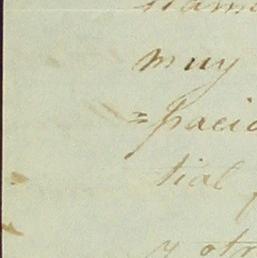 muy
=pacio
tial
y otr